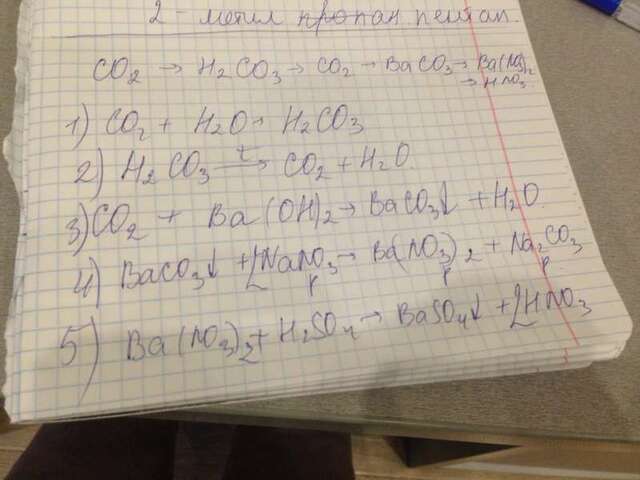 2 - метил пропан пентан.
CO2 → H2CO3 → CO2 → BaCO3 → Ba(NO3)2
→ HNO3.
1) CO2 + H2O → H2CO3
2) H2CO3 →t CO2 + H2O
3) CO2 + Ba(OH)2 → BaCO3↓ + H2O.
4) BaCO3↓ + 2NaNO3 → Ba(NO3)2 + Na2CO3
р р р
5) Ba(NO3)2 + H2SO4 → BaSO4↓ + 2HNO3